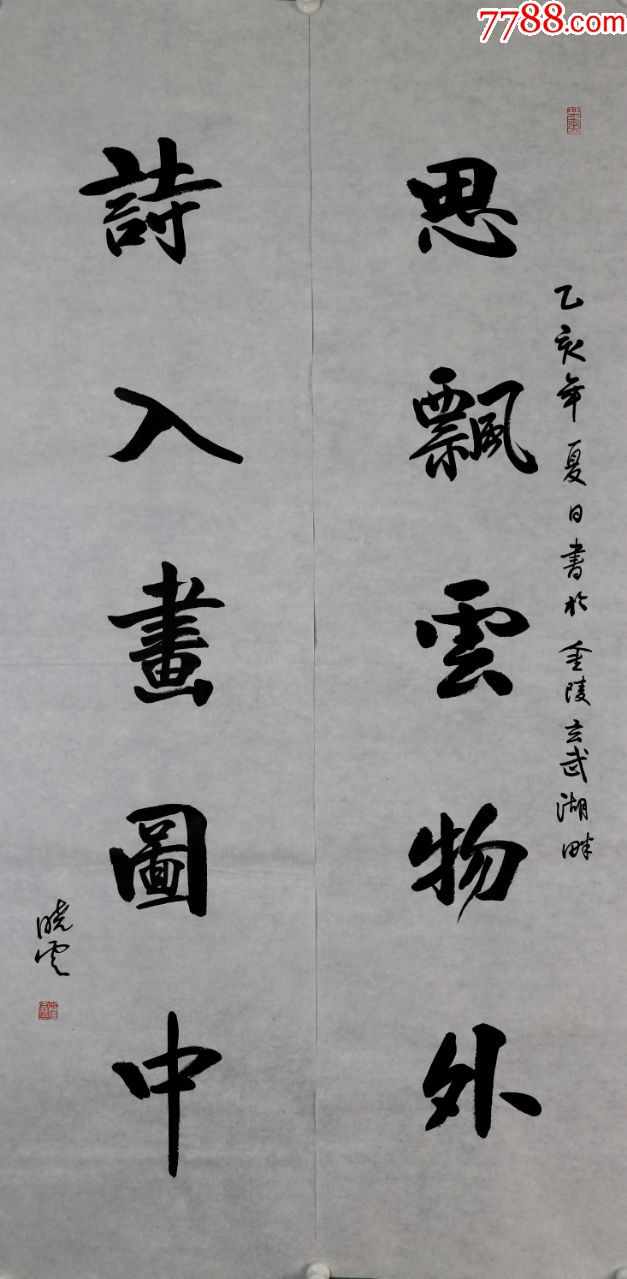 7788.com
乙亥年夏日書於金陵玄武湖畔
思飄雲物外
詩入畫圖中
晓云